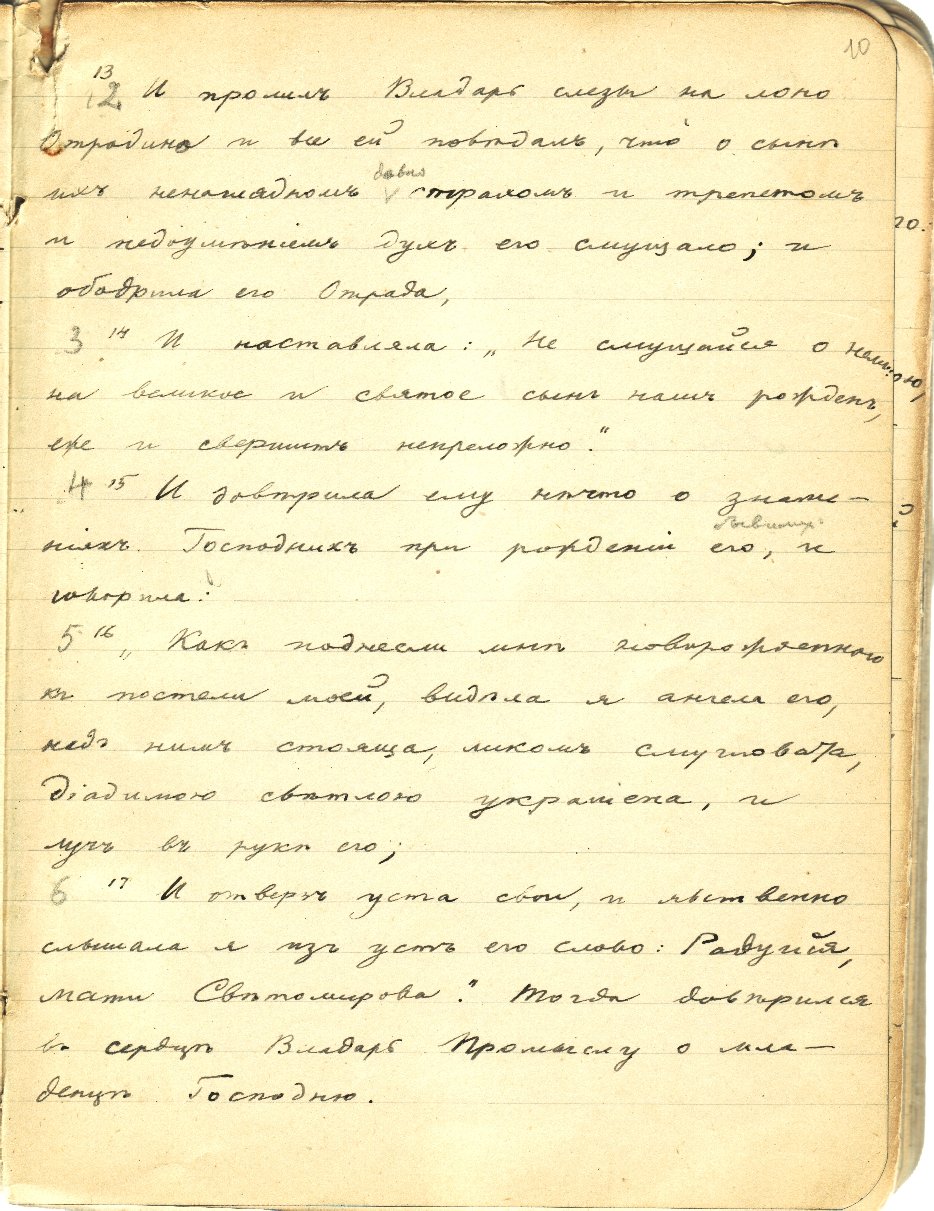 10
13
12 И пролилъ Владарь слезы на лоно
Отрадино и все ей повѣдалъ, что о сынѣ
давно
ихъ ненаглядномъ страхомъ и трепетомъ
и недоумѣніемъ духъ его смущало; и
ободрила его Отрада,
3 14 И наставляла: „Не смущайся о немъ:
на великое и святое сынъ нашъ рожденъ,
еже и свершитъ непреложно."
4 15 И довѣрила ему нѣчто о знаме-
бывшихъ
ніяхъ Господнихъ при рожденіи его, и
говорила:
5 16 „Какъ поднесли мнѣ новорожденного
къ постели моей, видѣла я ангела его,
надъ нимъ стояща, ликомъ смугловата,
діадимою свѣтлою украшена, и
лучъ въ рукѣ его;
6 17 И отверзъ уста свои, и явственно
слышала я изъ устъ его слово: Радуйся,
мати Свѣтомирова." Тогда довѣрился
въ сердцѣ Владарь Промыслу о мла-
денцѣ Господню.